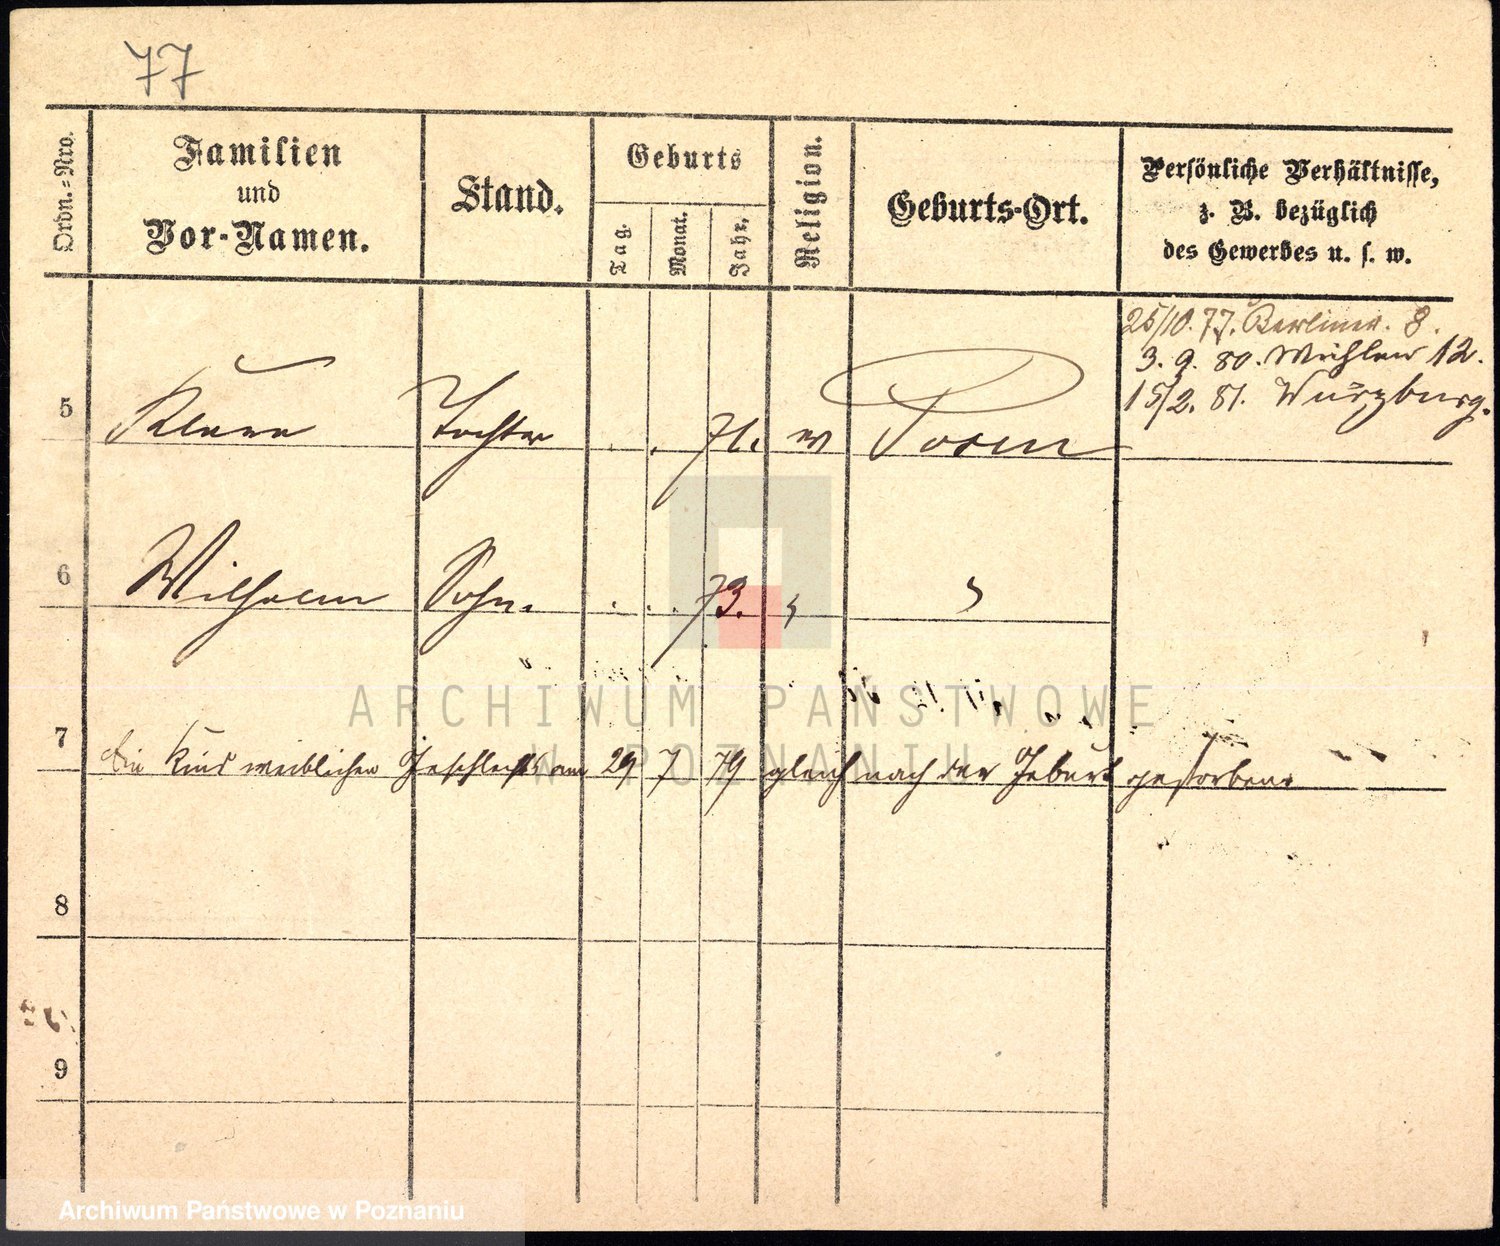 77
Ordn.-Nro.
Familien
und
Vor-Namen.
Stand.
Geburts
Tag.
Monat.
Jahr.
Religion.
Geburts-Ort.
Persönliche Verhältnisse,
z. B. bezüglich
des Gewerbes u. s. w.
25/10. 77. Berliner. 8.
3. 9. 80. Mühlen 12.
15/2. 81. Würzburg.
5 Klara Tochter 71. ev Posen
6 Wilhelm Sohn. 73. " "
7 Ein Kind weiblichen Geschlechts am 29 7 79 gleich nach der Geburt gestorben.
8
9
ARCHIWUM PAŃSTWOWE
W POZNANIU
Archiwum Państwowe w Poznaniu